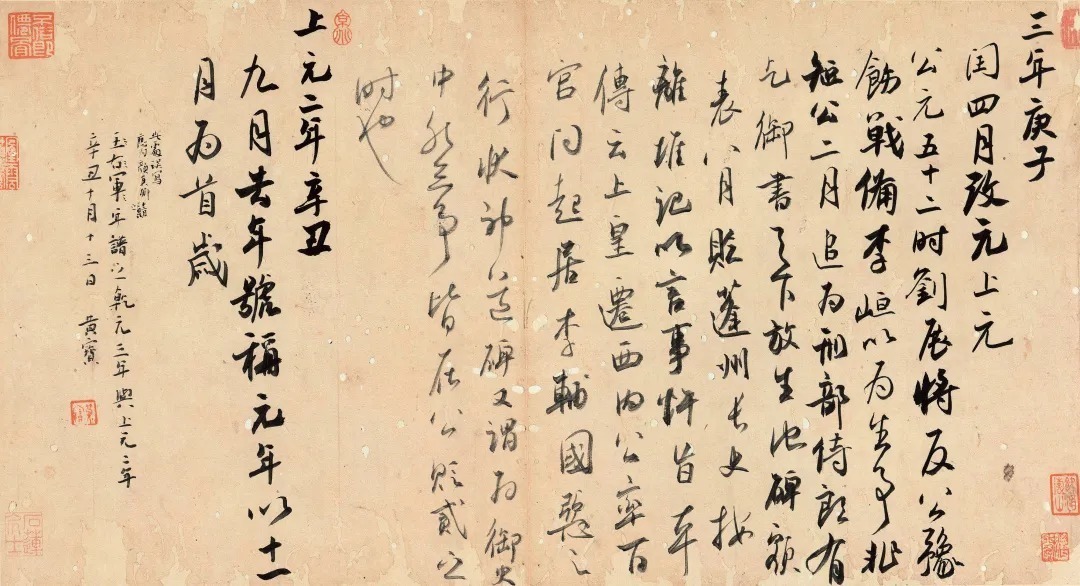 三年庚子
閏四月改元上元
公元五十二时劉展將反公豫
飭戰備李峘以为生事非
短公二月追为刑部侍郎有
乞御書天下放生池碑額
表八月貶蓬州長史按
離堆記以言事忤旨本
傳云上皇遷西内公率百
官问起居李輔國惡之
行狀神道碑又謂为御史
中丞言事皆在公貶貳之
时也
上元二年辛丑
九月去年號稱元年以十一
月为首歲
此處误写
應为顏真卿譜
王右軍年譜之乾元三年與上元二年
辛丑十月十三日 黄賓